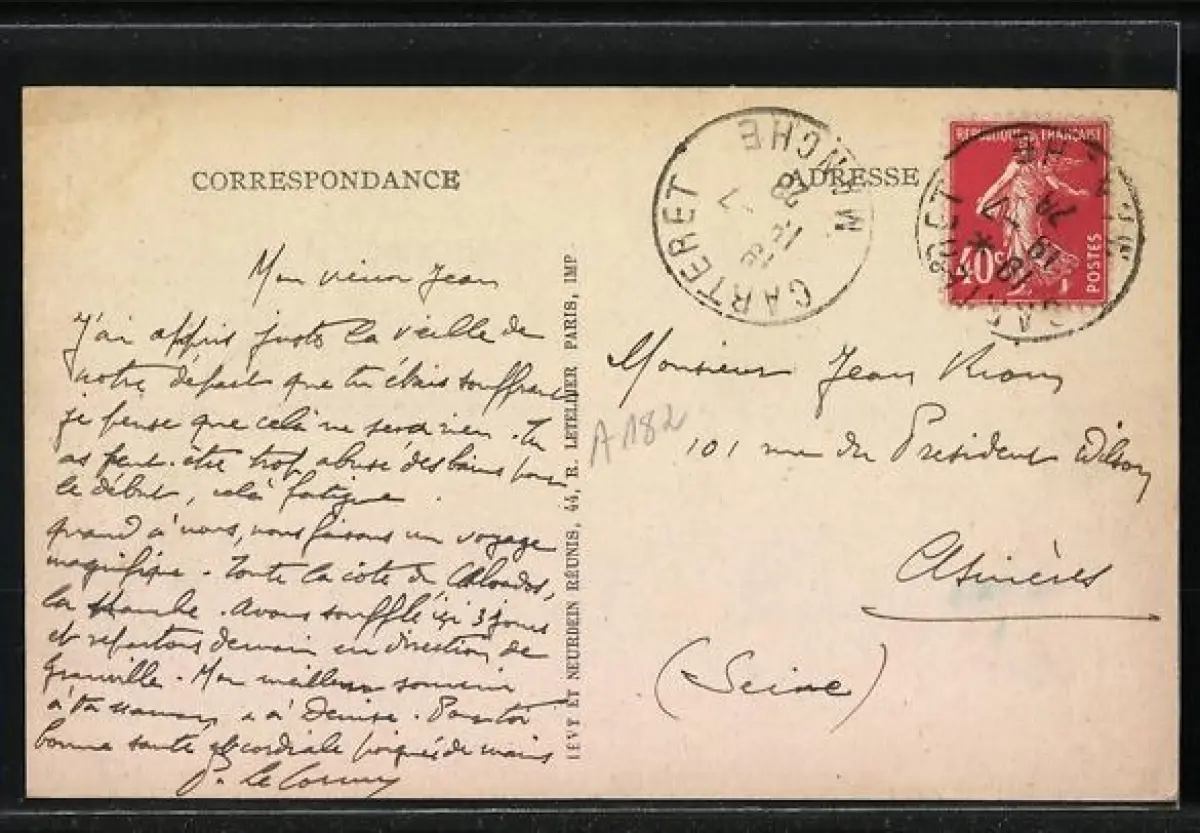 CORRESPONDANCE
Mon vieux Jean
J'ai appris juste la veille de
notre départ que tu étais souffrant
je pense que cela ne sera rien. Tu
as peut-être trop abusé des bains pour
le début, cela fatigue.
quand à nous, nous faisons un voyage
magnifique. Toute la côte du Calvados,
la Manche. Avons soufflé ici 3 jours
et repartons demain en direction de
Granville. Mon meilleur souvenir
à ta maman, et à Denise. Pour toi
bonne santé et cordiale poignée de mains
P. Le
LEVY ET NEURDEIN RÉUNIS, 44, R. LETELLIER PARIS, IMP
ADRESSE
CARTERET
MANCHE
REPUBLIQUE FRANÇAISE
40c
POSTES
A 182
Monsieur Jean
101 rue du President Wilson
Asnières
(Seine)